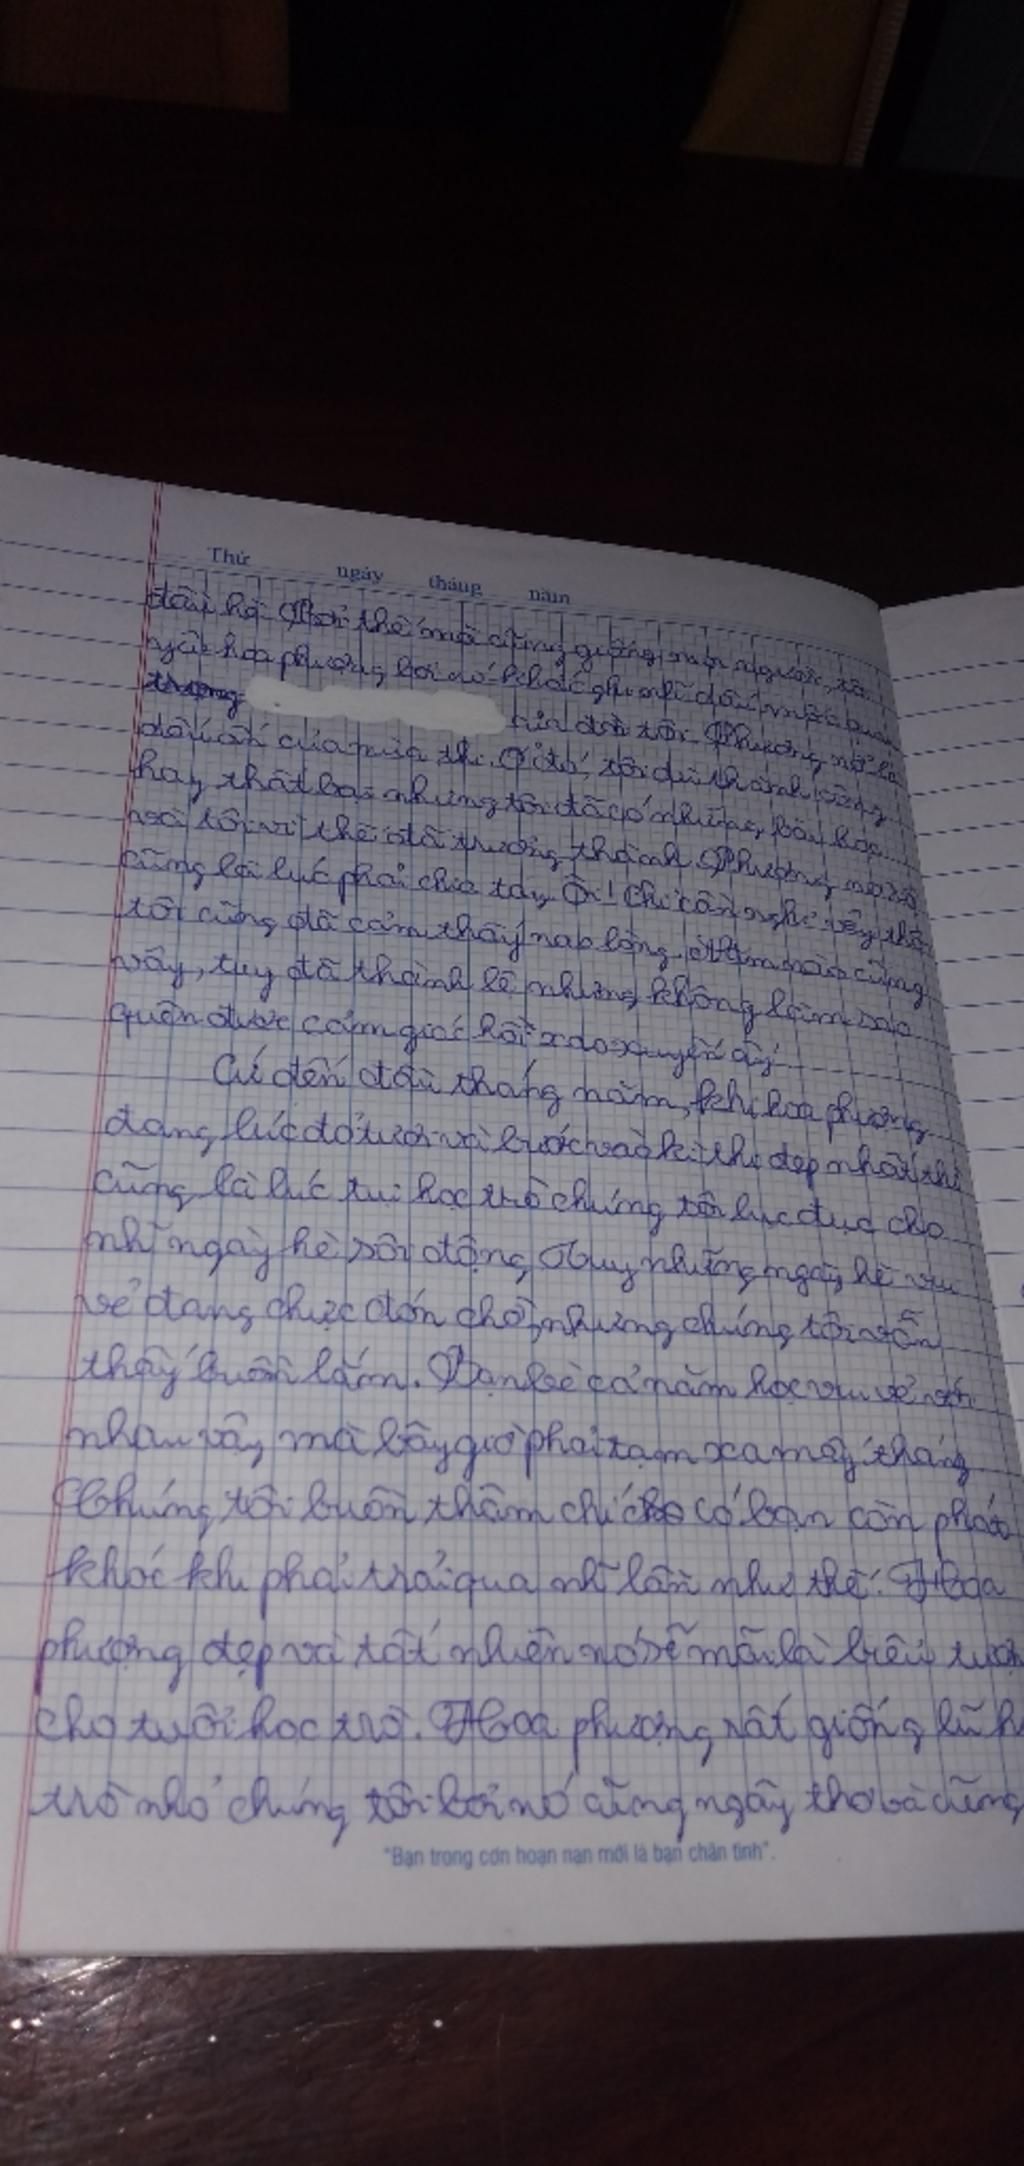 Thứ ngày tháng năm
đầu hè. Bởi thế mà cũng giống mọi người, tôi
yêu hoa phượng bởi nó khắc ghi
đời tôi. Phượng nở là
dấu ấn của mùa thi. Ở đó, tôi dù thành công
hay thất bại nhưng tôi đã có những bài học
với tôi vì thế đã trưởng thành. Phượng nở rồi
cũng là lúc phải chia tay. Ôi! Chỉ cần nghĩ vậy thôi
tôi cũng đã cảm thấy nao lòng. Năm nào cũng
vậy, tuy đã thành lệ nhưng không làm sao
quên được cảm giác hồi xao xuyến ấy
Cứ đến đầu tháng năm, khi hoa phượng
đang lúc đỏ tươi và bước vào kì thi đẹp nhất thì
cũng là lúc tụi học trò chúng tôi lục đục cho
nhĩ ngày hè sôi động. Tuy những ngày hè vui
vẻ đang chực đón chờ, nhưng chúng tôi vẫn
thấy buồn lắm. Bạn bè cả năm học vui vẻ với
nhau vậy mà bây giờ phải tạm xa mấy tháng
Chúng tôi buồn thậm chí có bạn còn phát
khóc khi phải trải qua nhĩ lần như thế. Hoa
phượng đẹp và tất nhiên nó sẽ mãi là biểu tượn
cho tuổi học trò. Hoa phượng rất giống lũ h
trò nhỏ chúng tôi bởi nó cũng ngây thơ và cũng
"Bạn trong cơn hoạn nạn mới là bạn chân tình".